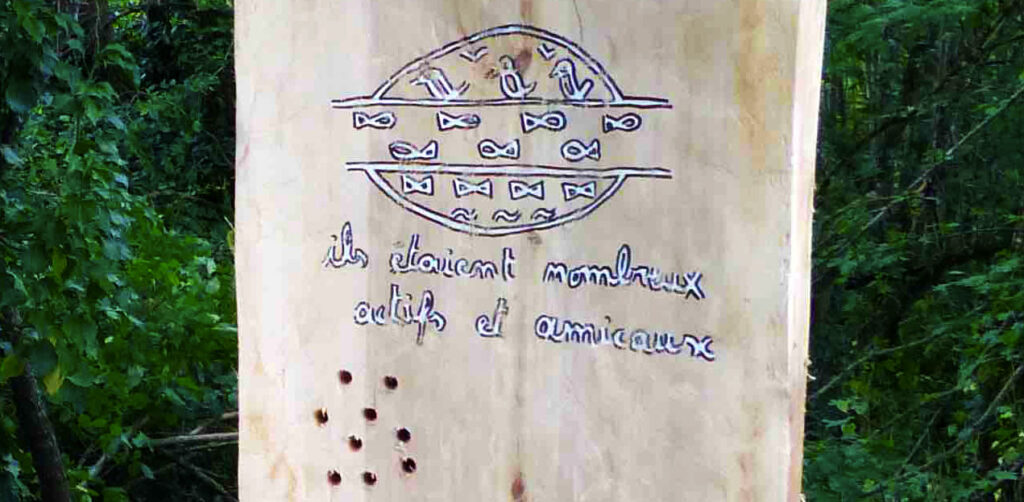 ils étaient nombreux
actifs et amicaux